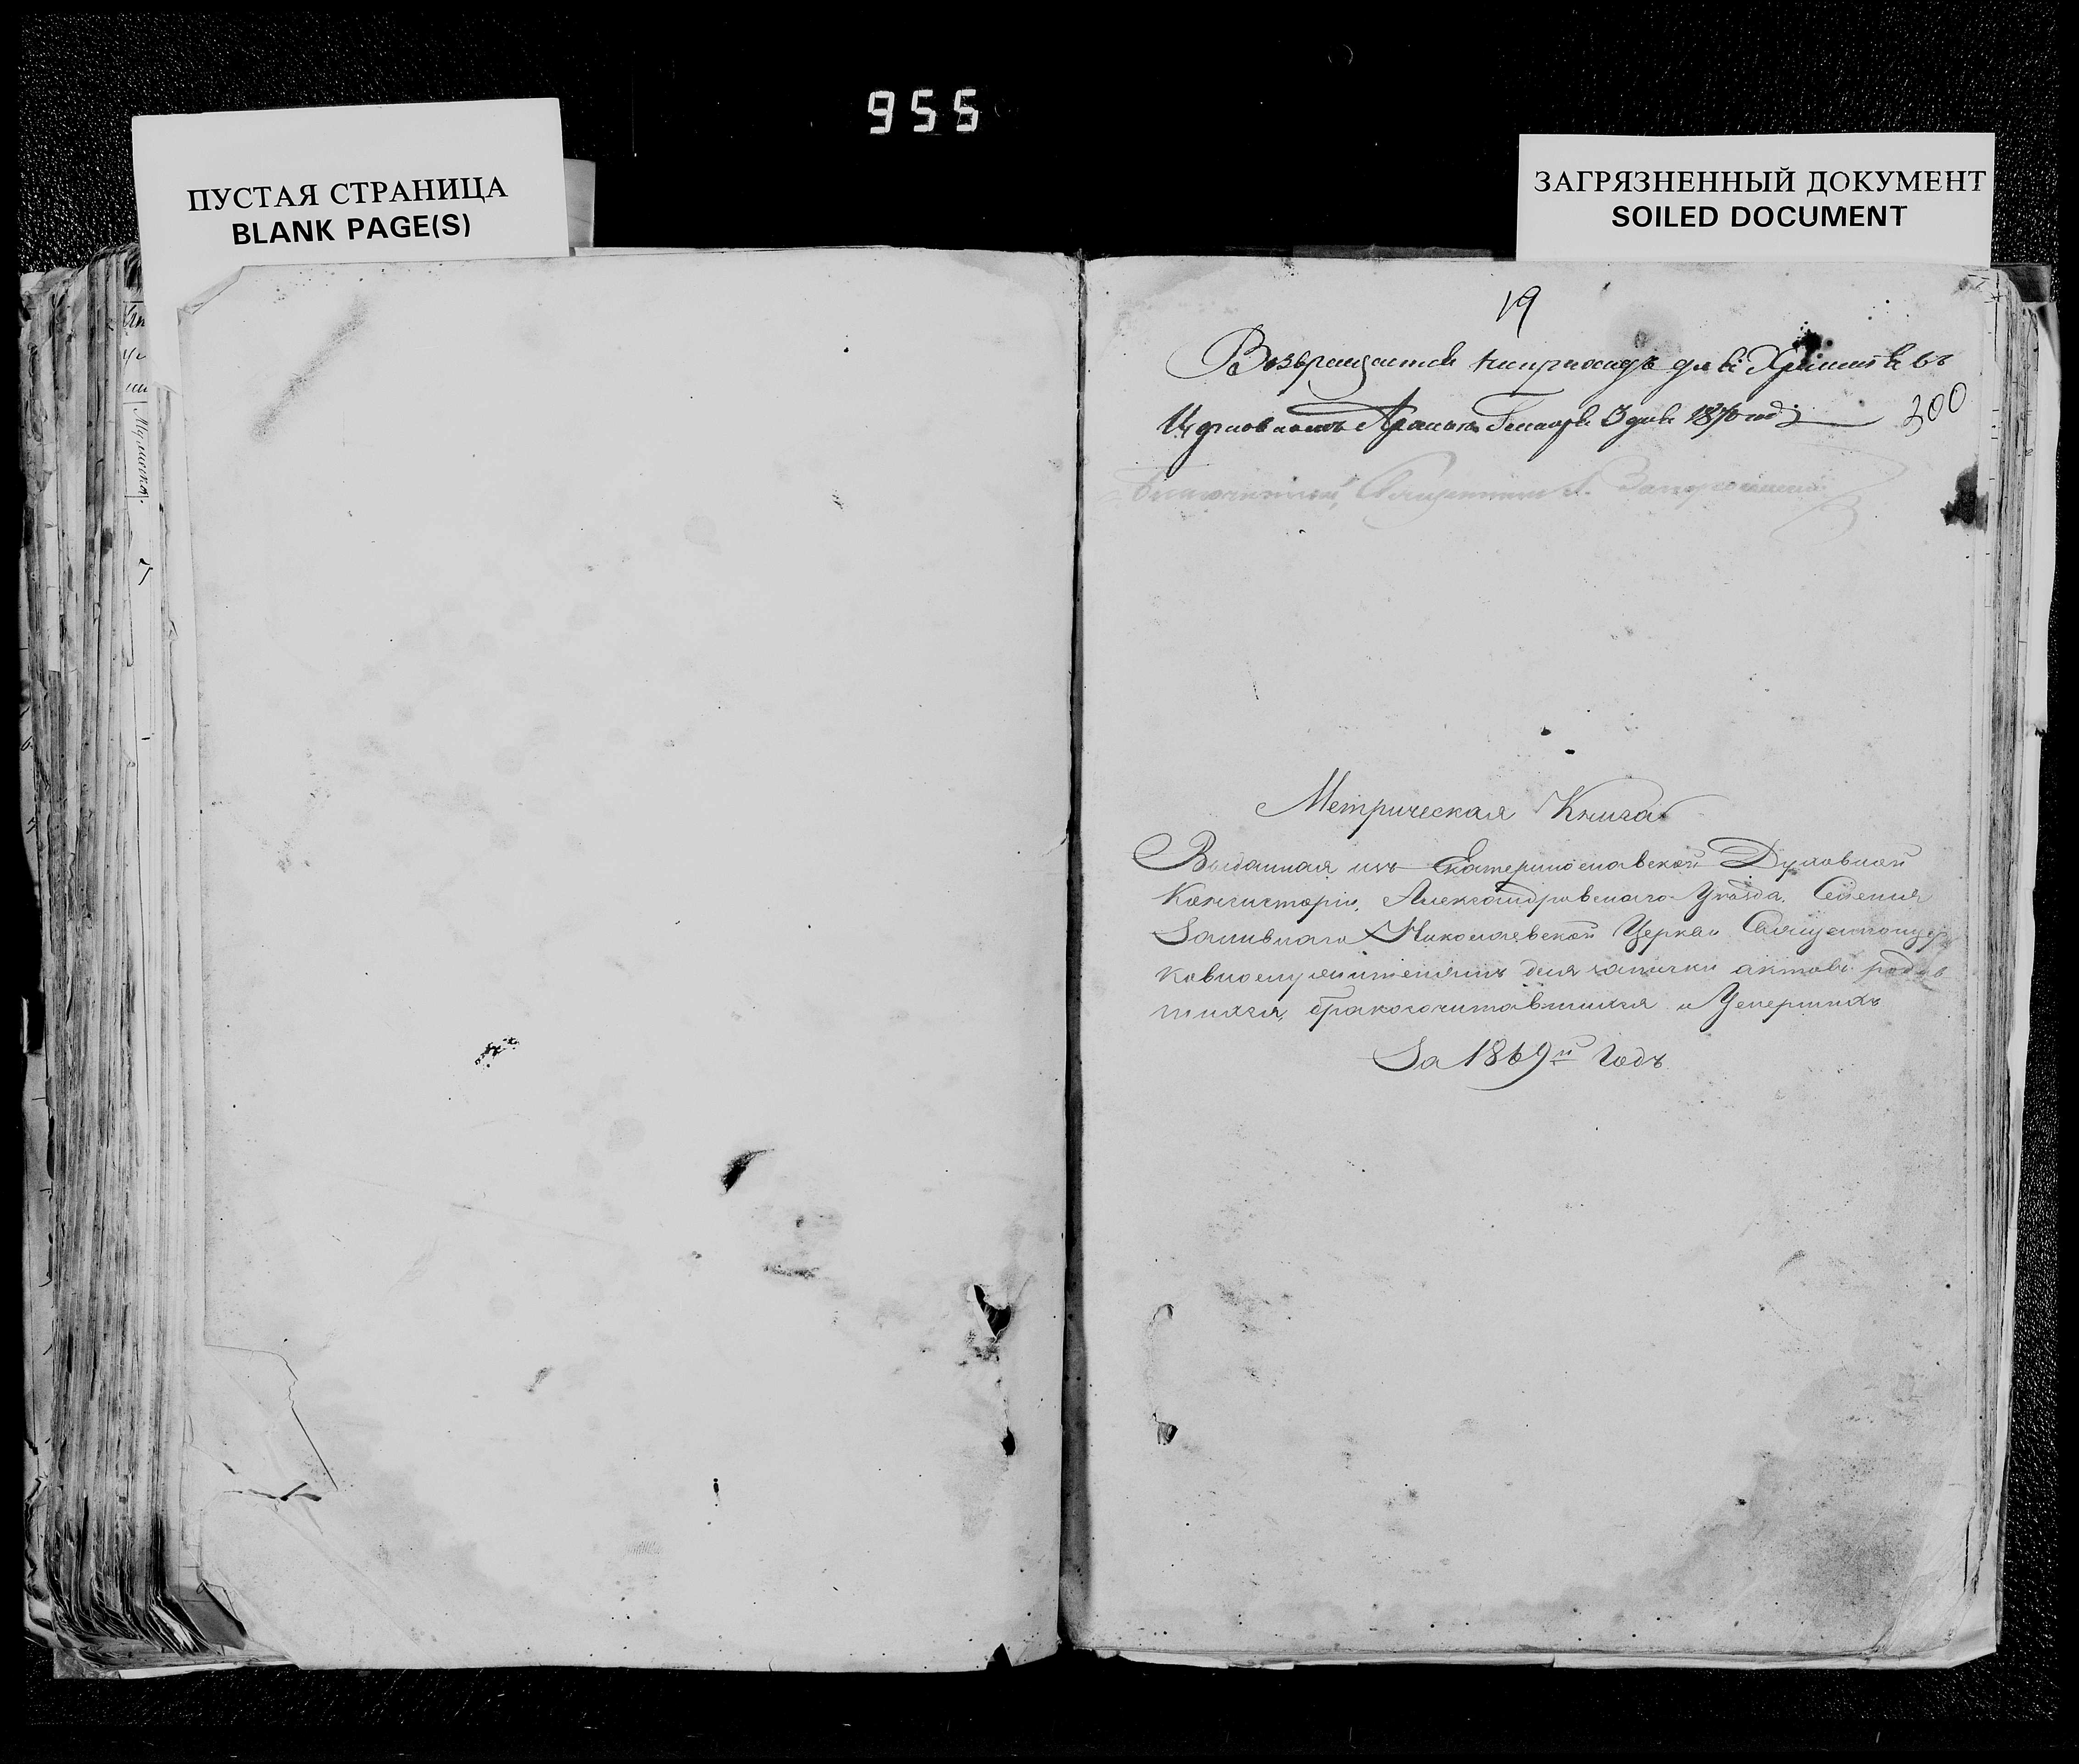 955
ПУСТАЯ СТРАНИЦА
BLANK PAGE(S)
ЗАГРЯЗНЕННЫЙ ДОКУМЕНТ
SOILED DOCUMENT
19
Возвращается въ приходъ для Храненія въ
Церковномъ Архивѣ Генваря 3 дня 1870 года
200
Благочинный, Священникъ
Метрическая Книга
Выданная изъ Екатеринославской Духовной
Консисторіи, Александровскаго Уѣзда, Селенія
Заливнаго Николаевской Церкви Священноцер
ковнослужителямъ для записки актовъ родив
шихся, бракосочитавшихся и Умершихъ
За 1869й Годъ